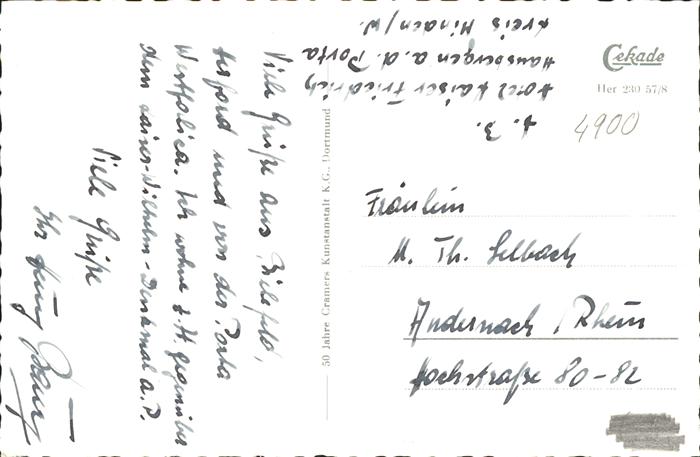 Viele Grüße aus Bielefeld,
Herford und von der Porta
Westfalica. Ich wohne z. Zt. gegenüber
dem Kaiser-Wilhelm-Denkmal a. P.
Viele Grüße
Ihr
50 Jahre Cramers Kunstanstalt K.G., Dortmund
z. Z.
Hotel Kaiser Friedrich
Hausbergen a. d. Porta
Kreis Minden/W.
Cekade
Her 230 57/8
4900
Fräulein
M. Th. Selbach
Andernach/Rhein
Hochstraße 80-82